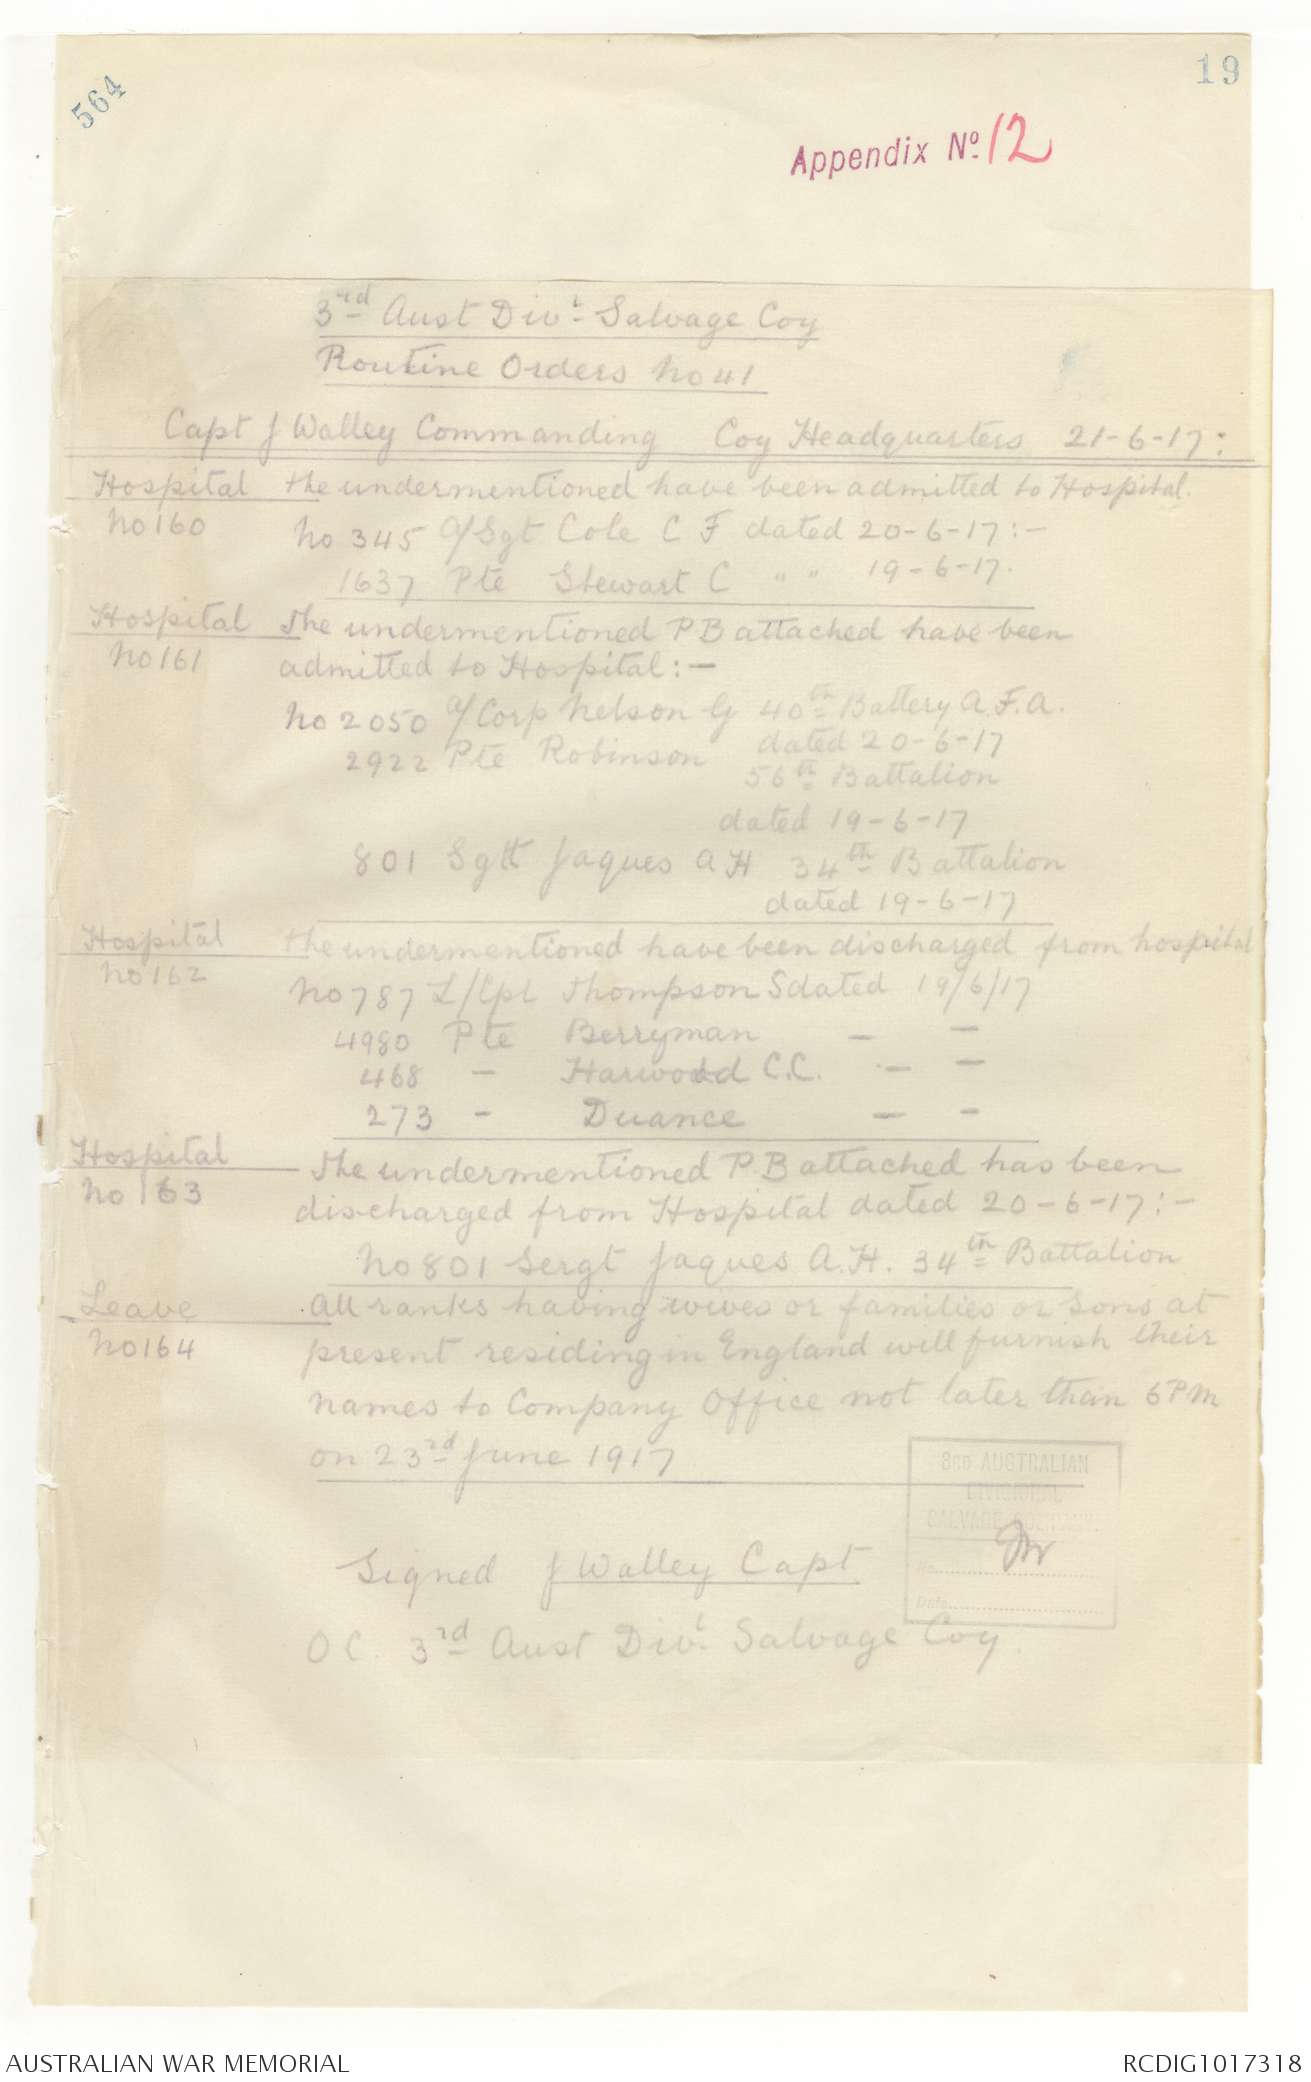 564
19
Appendix No. 12
3rd Aust Divl. Salvage Coy
Routine Orders No 41
Capt J Walley Commanding Coy Headquarters 21-6-17:
Hospital the undermentioned have been admitted to Hospital.
No 160 No 345 A/Sgt Cole C F dated 20-6-17:-
1637 Pte Stewart C " " 19-6-17.
Hospital The undermentioned P B attached have been
No 161 admitted to Hospital:-
No 2050 A/Corp Nelson G 40th Battery A.F.A.
dated 20-6-17
2922 Pte Robinson
56th Battalion
dated 19-6-17
801 Sgt Jaques A H 34th Battalion
dated 19-6-17
Hospital the undermentioned have been discharged from hospital
No 162 No 787 L/Cpl Thompson S dated 19/6/17
4980 Pte Berryman - -
468 - Harwood C.C. - -
273 - Duance - -
Hospital The undermentioned P.B attached has been
No 163 discharged from Hospital dated 20-6-17:-
No 801 Sergt Jaques A.H. 34th Battalion
Leave All ranks having wives or families or sons at
No 164 present residing in England will furnish their
names to Company Office not later than 6 PM
on 23rd June 1917
3RD AUSTRALIAN
DIVISIONAL
SALVAGE COMPANY.
No.
Date
Signed J Walley Capt
OC. 3rd Aust Divl. Salvage Coy.
AUSTRALIAN WAR MEMORIAL
RCDIG1017318